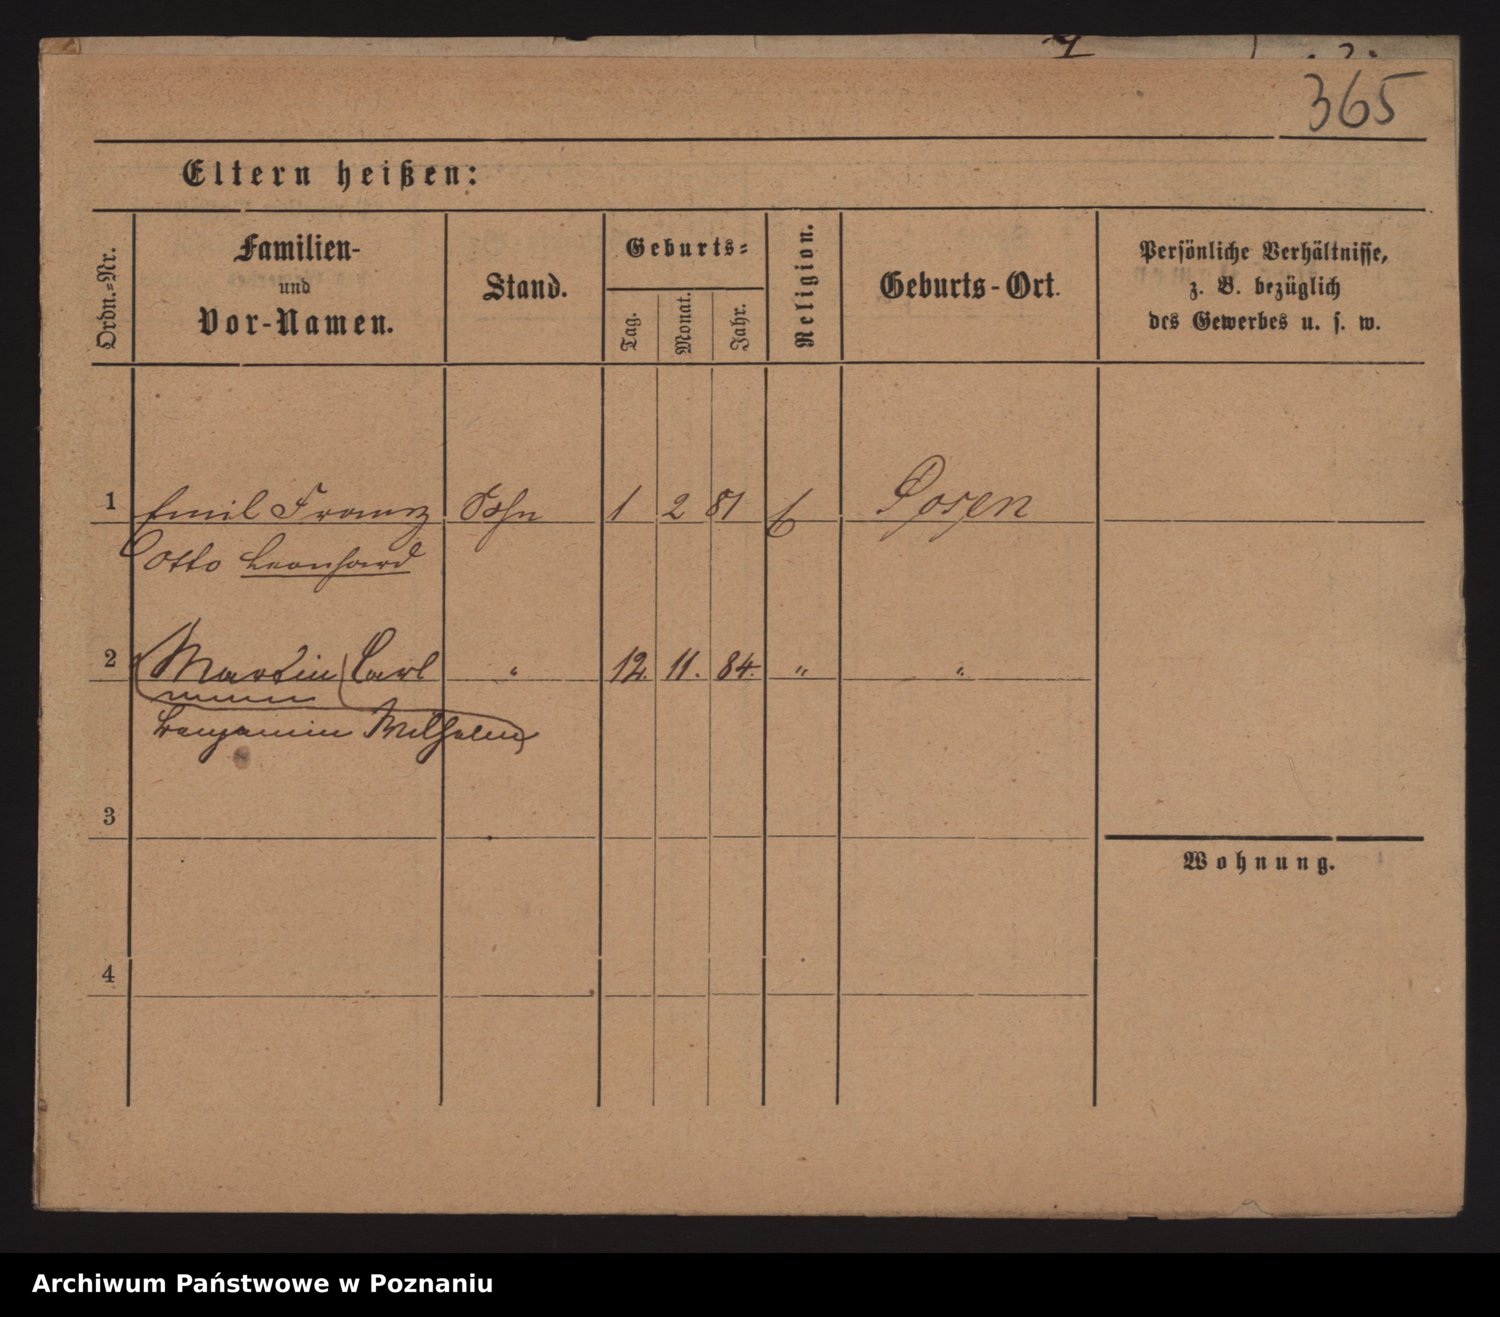 365
Eltern heißen:
Ordn.-Nr.
Familien-
und
Vor-Namen.
Stand.
Geburts-
Tag.
Monat.
Jahr.
Religion.
Geburts-Ort.
Persönliche Verhältnisse,
z. B. bezüglich
des Gewerbes u. s. w.
1 Emil Franz Sohn 1 2 81 Posen
Otto Leonhard
2 Martin Carl " 12. 11. 84. " "
Benjamin Wilhelm
3
Wohnung.
4
Archiwum Państwowe w Poznaniu